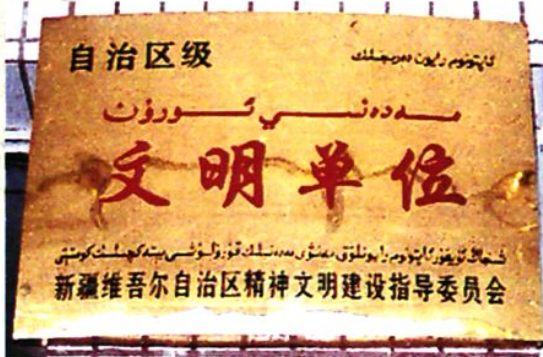 自治区级
ئاپتونوم رايون دەرىجىلىك
مەدەنىي ئورۇن
文明单位
شىنجاڭ ئۇيغۇر ئاپتونوم رايونلۇق مەنىۋى مەدەنىيلىك قۇرۇلۇشى يېتەكچىلىك كومىتېتى
新疆维吾尔自治区精神文明建设指导委员会